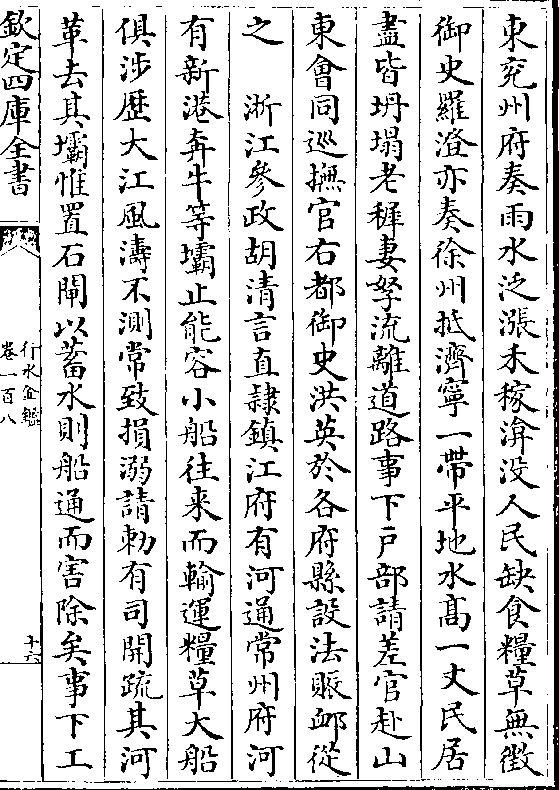 東兖州府奏雨水泛漲禾稼渰没人民缺食糧草無徴
御史羅澄亦奏徐州抵濟寧一帶平地水髙一丈民居
盡皆坍塌老穉妻孥流離道路事下戸部請差官赴山
東會同巡撫官右都御史洪英於各府縣設法賑䘏從
之　浙江參政胡清言直隷鎮江府有河通常州府河
有新港奔牛等壩止能容小船往来而輸運糧草大船
俱渉歴大江風濤不測常致損溺請勅有司開疏其河
革去其壩惟置石閘以蓄水則船通而害除矣事下工
欽定四庫全書
行水金鑑
卷一百八
十六